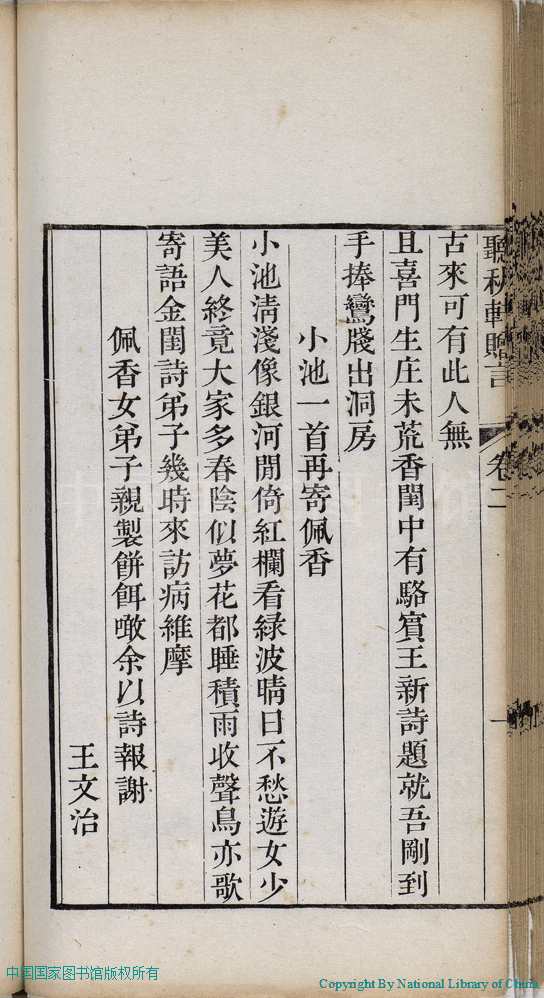 聽秋軒贈言 卷二 一
古來可有此人無
且喜門生庄未荒香閨中有駱賓王新詩題就吾剛到
手捧鸞牋出洞房
小池一首再寄佩香
小池淸淺像銀河閒倚紅欄看綠波晴日不愁遊女少
美人終竟大家多春陰似夢花都睡積雨收聲鳥亦歌
寄語金閨詩弟子幾時來訪病維摩
佩香女弟子親製餅餌噉余以詩報謝
王文治
中国国家图书馆
中国国家图书馆版权所有
Copyright By National Library of China